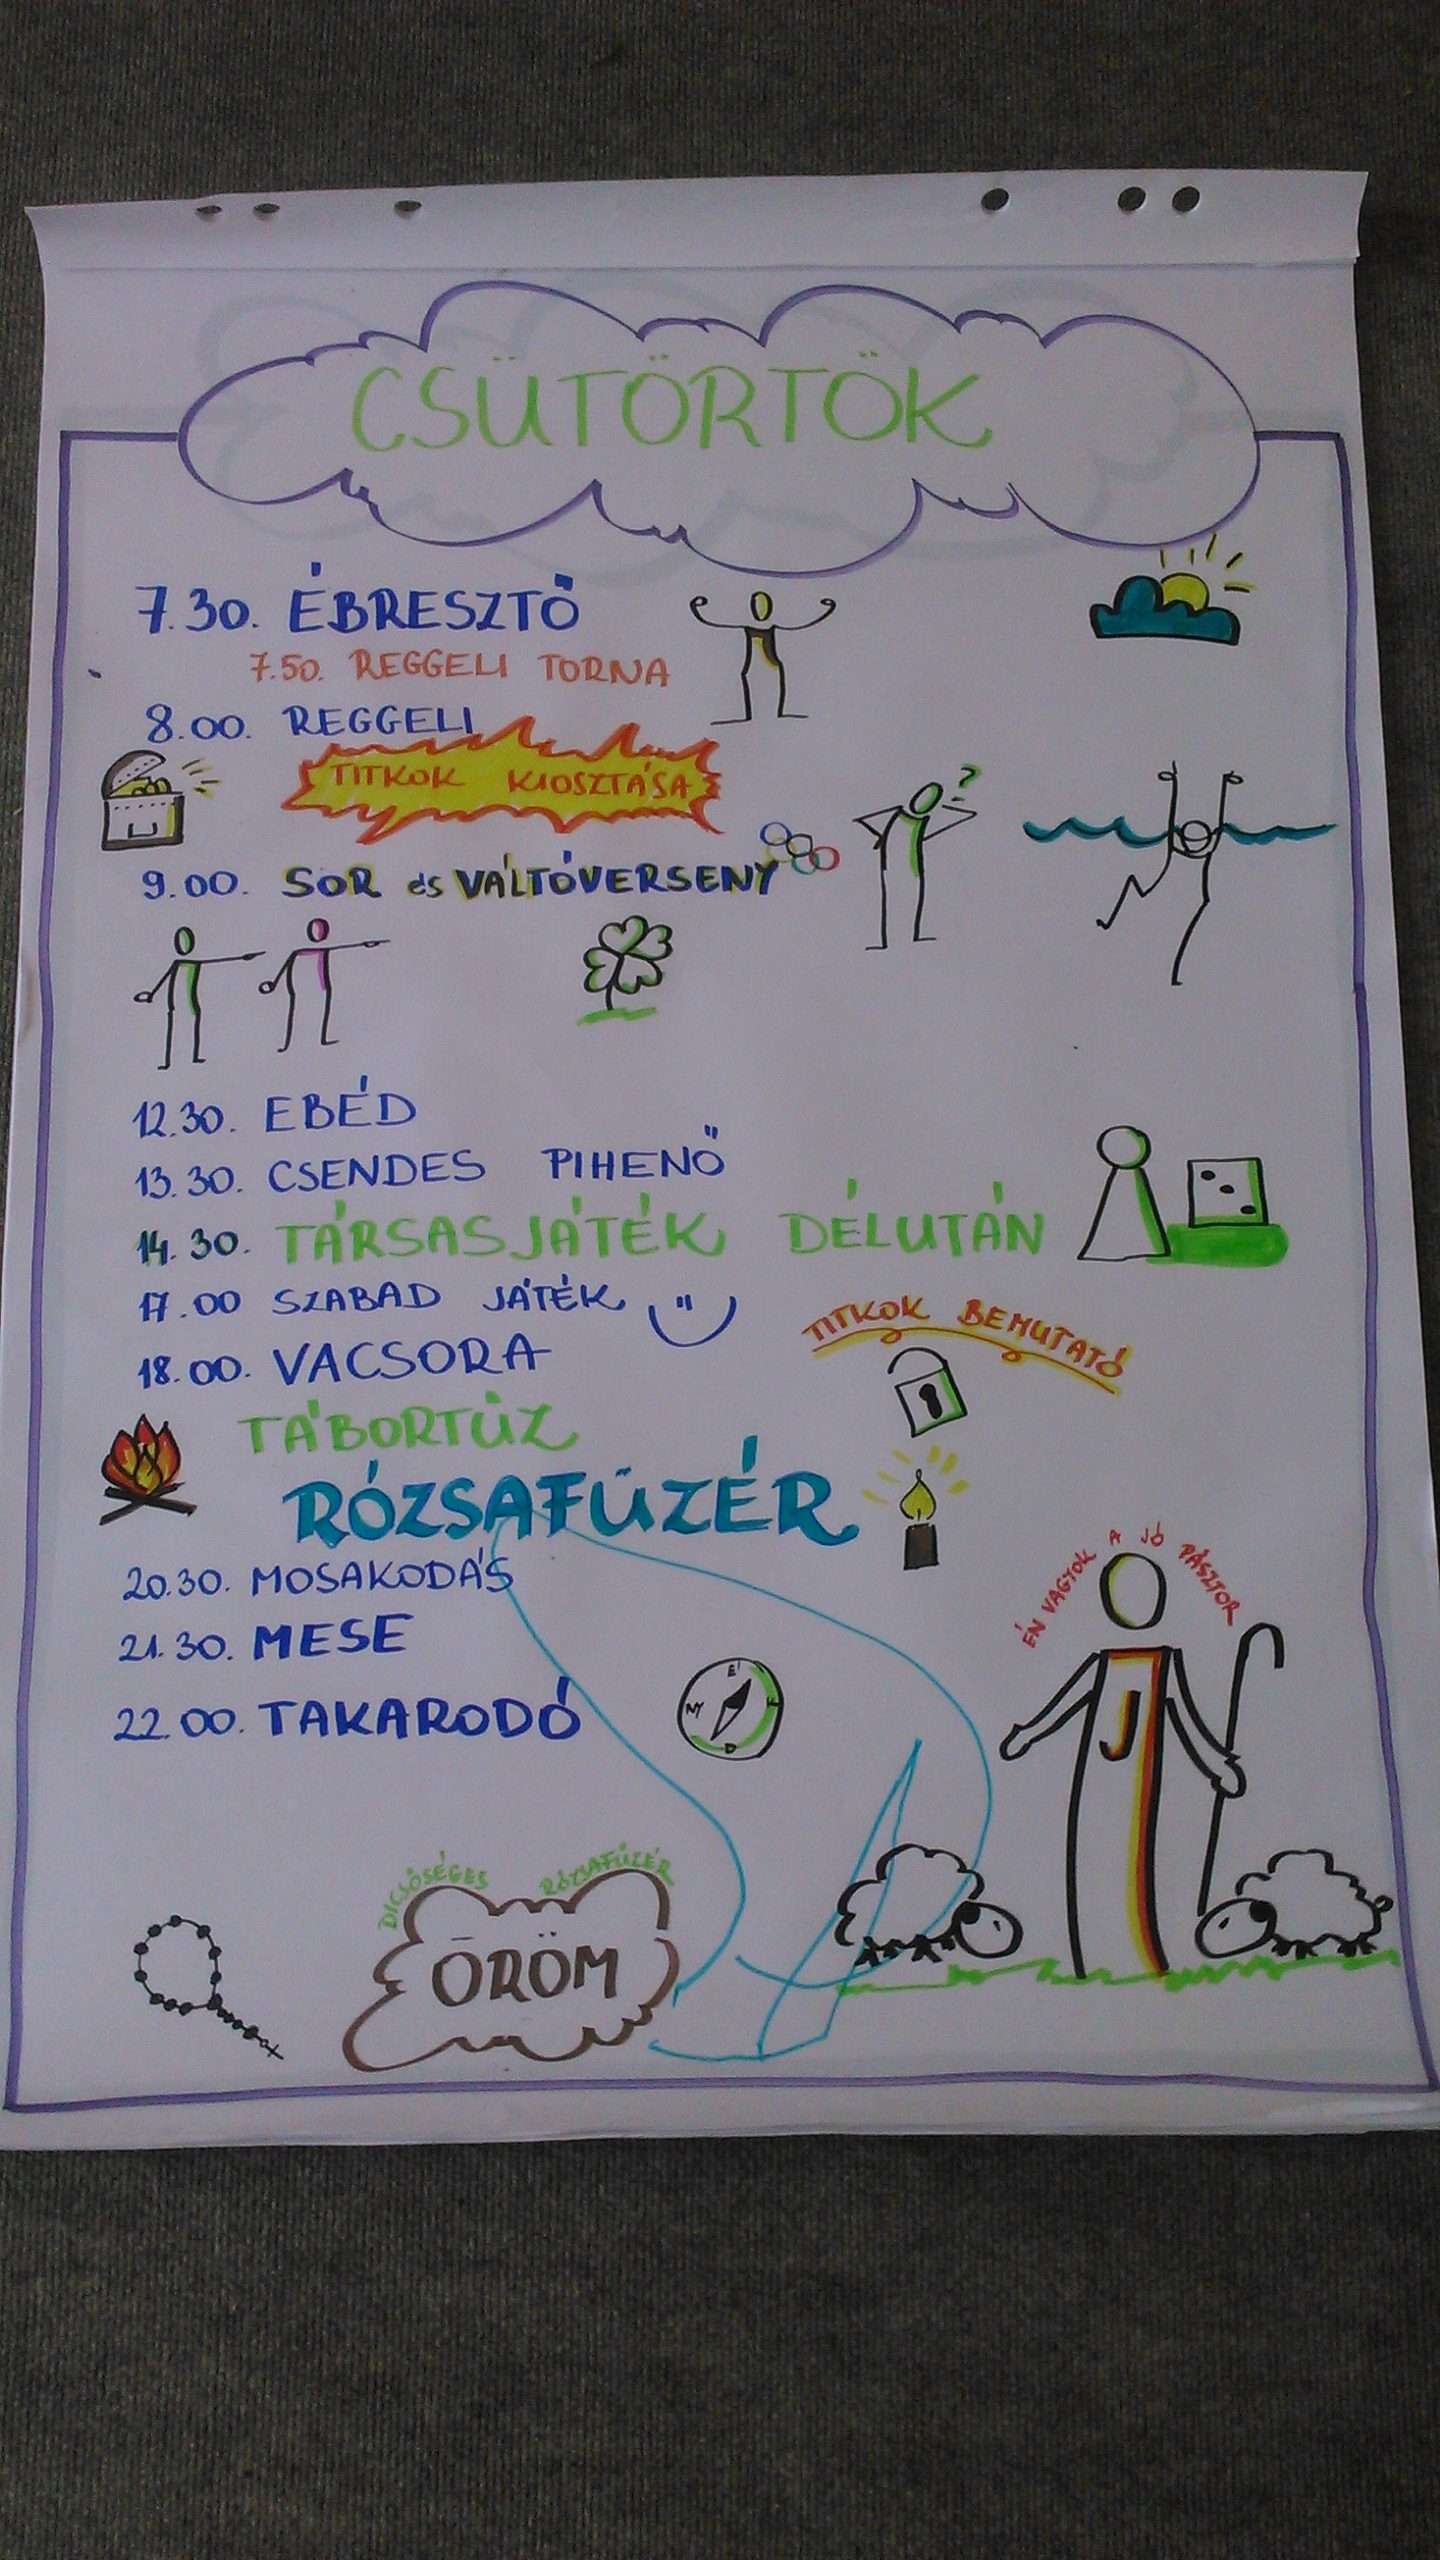 CSÜTÖRTÖK
7.30. ÉBRESZTŐ
7.50. REGGELI TORNA
8.00. REGGELI
TITKOK KIOSZTÁSA
?
9.00. SOR és VÁLTÓVERSENY
12.30. EBÉD
13.30. CSENDES PIHENŐ
14.30. TÁRSASJÁTÉK DÉLUTÁN
17.00 SZABAD JÁTÉK
TITKOK BEMUTATÓ
18.00. VACSORA
TÁBORTŰZ
RÓZSAFŰZÉR
ÉN VAGYOK A JÓ PÁSZTOR
20.30. MOSAKODÁS
21.30. MESE
22.00. TAKARODÓ
É
NY K
D
J
DICSŐSÉGES RÓZSAFŰZÉR
ÖRÖM